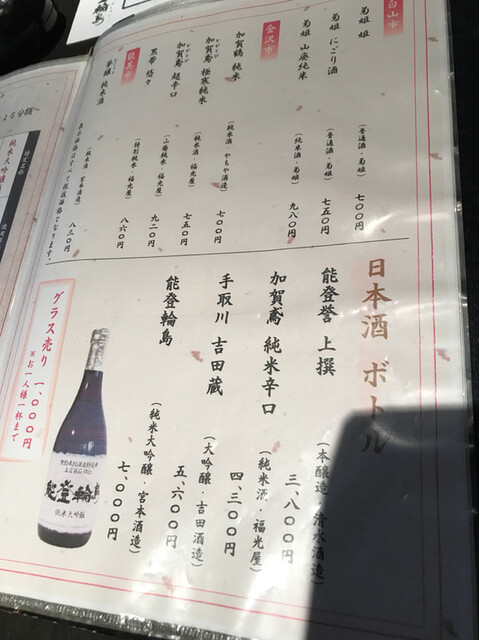 白山市
菊姫 姫 (普通酒・菊姫) 七〇〇円
菊姫 にごり酒 (普通酒・菊姫) 七五〇円
菊姫 山廃純米 (純米酒・菊姫) 九八〇円
金沢市
加賀鶴 純米 (純米酒・やちや酒造) 七〇〇円
加賀鳶 極寒純米 (純米酒・福光屋) 七五〇円
加賀鳶 超辛口 (山廃純米・福光屋) 九二〇円
黒帯 悠々 (特別純米・福光屋) 八六〇円
能美市
夢醸 純米酒 (純米酒・宮本酒造) 八三〇円
表示価格はすべて税抜価格となります。
日本酒 ボトル
能登誉 上撰 (本醸造・清水酒造) 三、八〇〇円
加賀鳶 純米辛口 (純米酒・福光屋) 四、三〇〇円
手取川 吉田蔵 (大吟醸・吉田酒造) 五、六〇〇円
能登輪島 (純米大吟醸・宮本酒造) 七、〇〇〇円
グラス売り 一、〇〇〇円
※お一人様一杯まで
能登輪島
純米大吟醸
よる分類
純米大吟醸
輪島